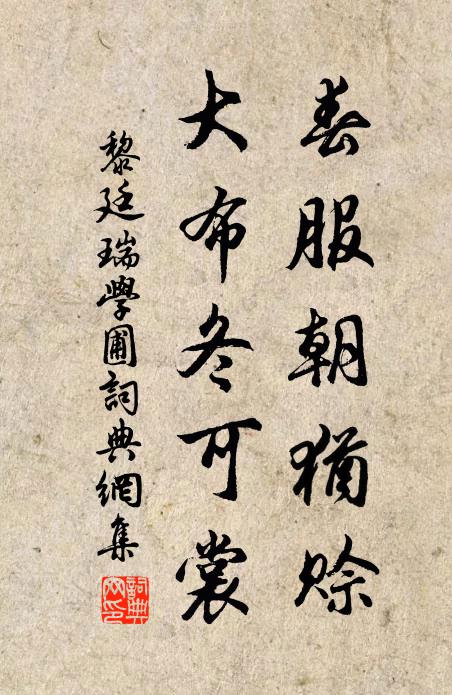 春服朝猶賒
大布冬可裳
黎廷瑞學圃詞典網集
詞典網印